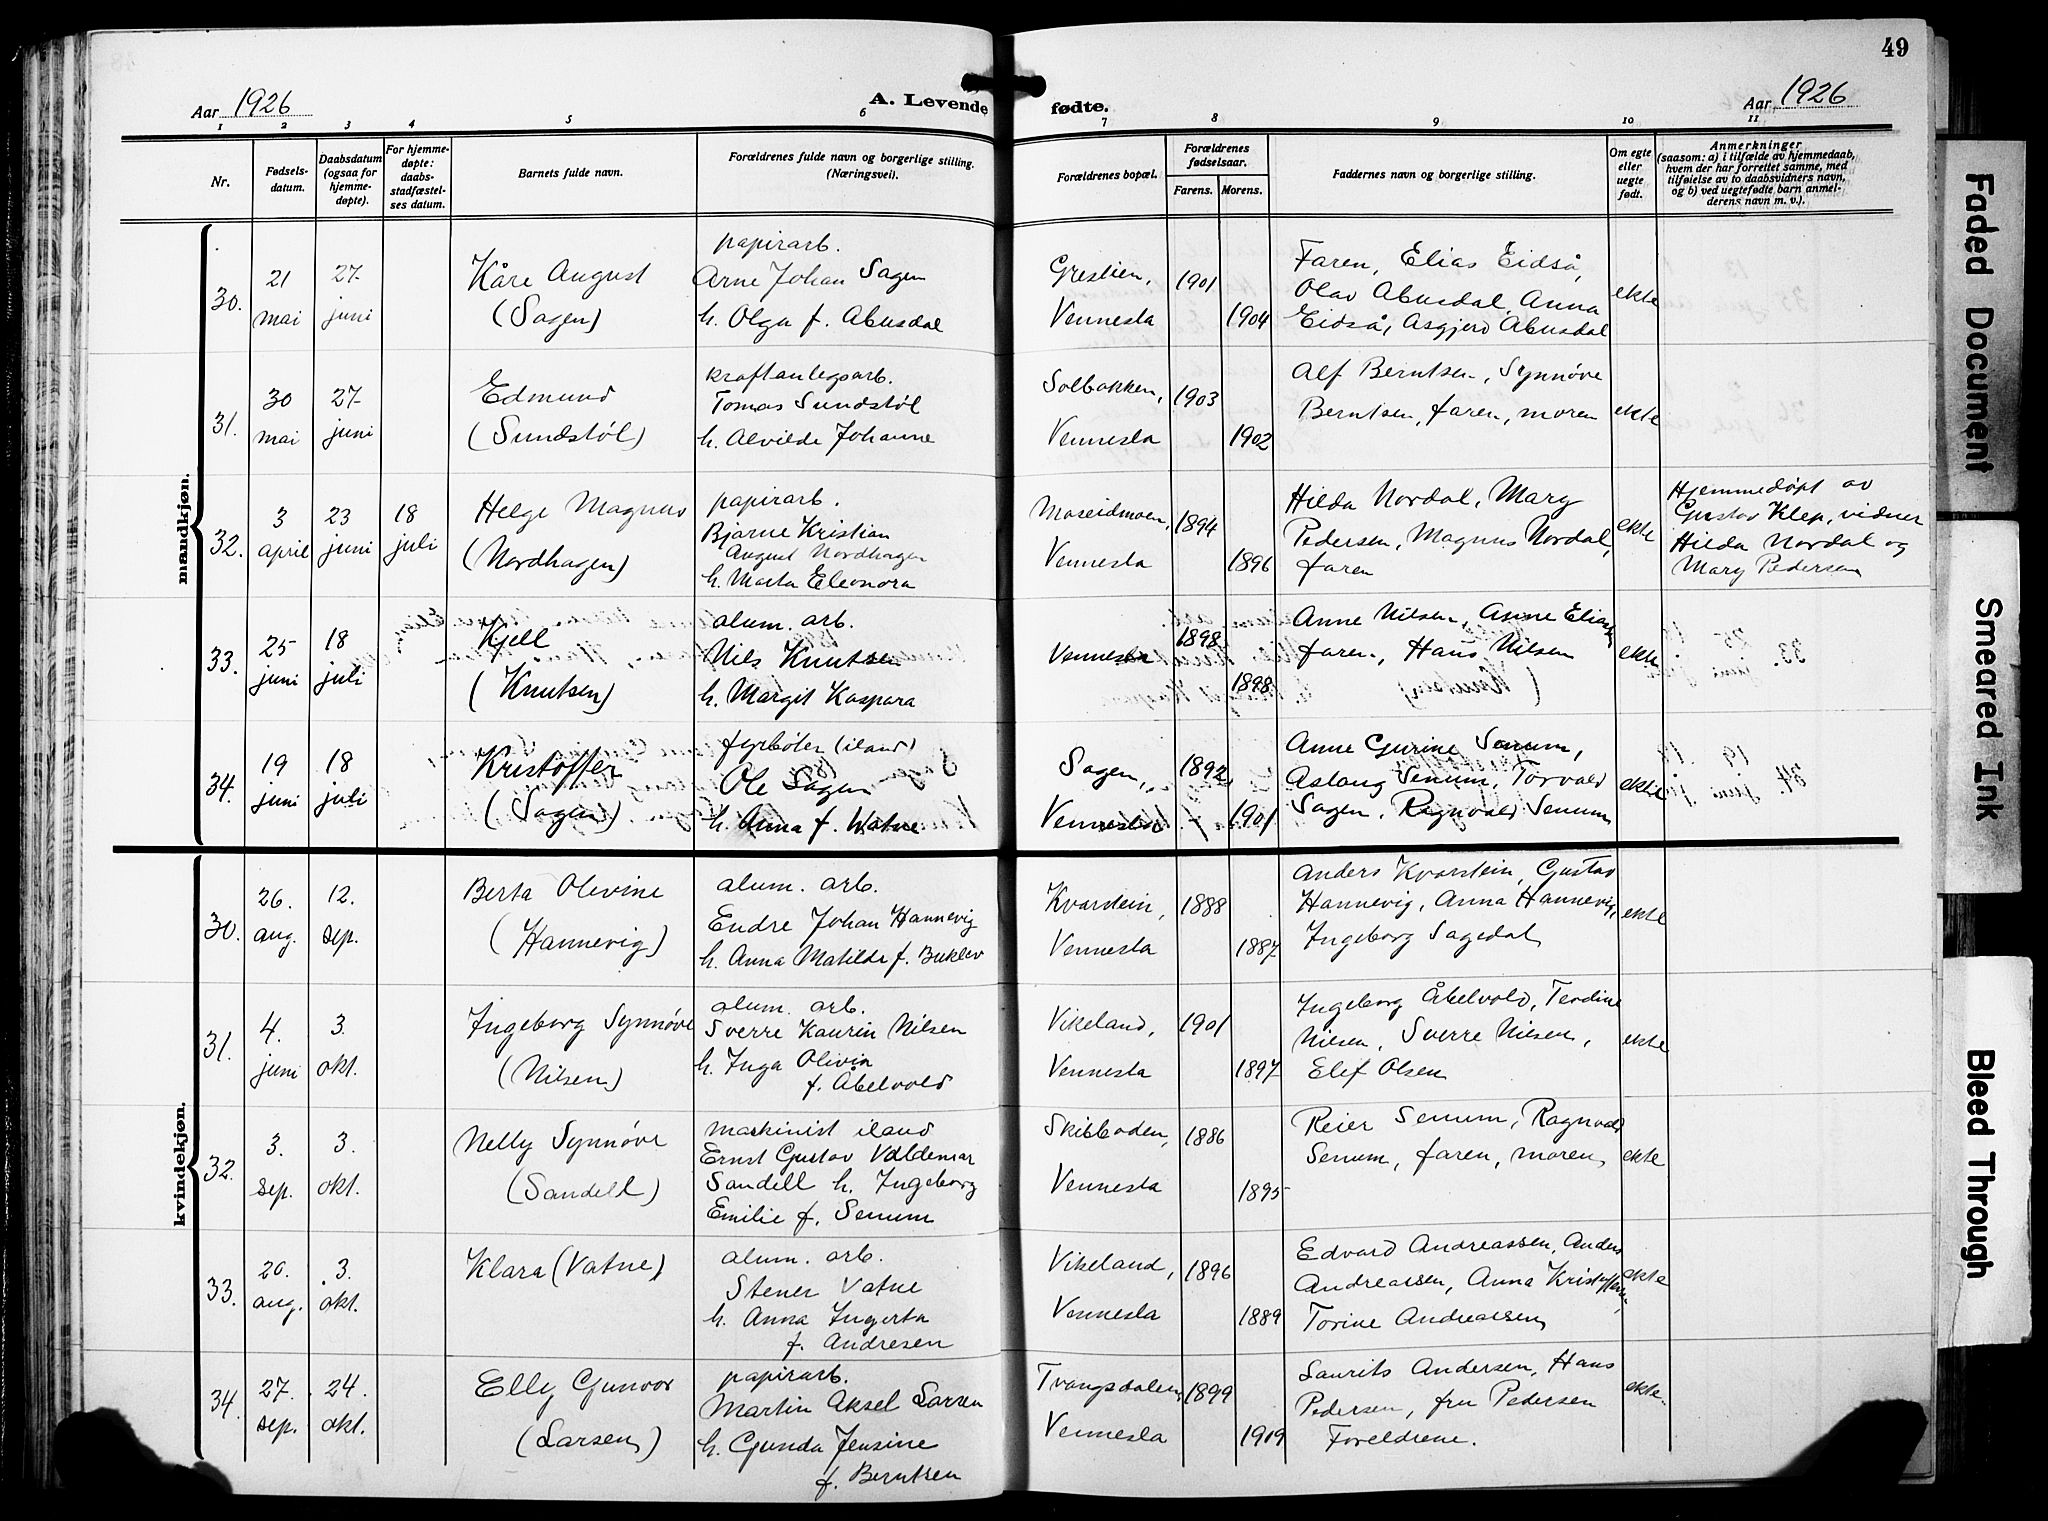 49
Aar 1926
A. Levende fødte.
Aar 1926
1 2 3 4 5 6 7 8 9 10 11
Nr.
Fødsels-
datum.
Daabsdatum
(ogsaa for
hjemme-
døpte).
For hjemme-
døpte:
daabs-
stadfæstel-
ses datum.
Barnets fulde navn.
Forældrenes fulde navn og borgerlige stilling.
(Næringsvei).
Forældrenes bopæl.
Forældrenes
fødselsaar.
Farens. Morens.
Faddernes navn og borgerlige stilling.
Om egte
eller
uegte
født.
Anmerkninger
(saasom: a) i tilfælde av hjemmedaab,
hvem der har forrettet samme, med
tilføielse av to daabsvidners navn,
og b) ved uegtefødte barn anmel-
derens navn m. v.).
mandkjøn.
30.
21
mai
27.
juni
Kåre August
(Sagen)
papirarb.
Arne Johan Sagen
h. Olga f. Abusdal
Grestien,
Vennesla
1901
1904
Faren, Elias Eidså,
Olav Abusdal, Anna
Eidså, Asgjerd Abusdal
ekte
31.
30
mai
27.
juni
Edmund
(Sundstøl)
kraftanlegsarb.
Tomas Sundstøl
h. Alvilde Johanne
Solbakken,
Vennesla
1903
1902
Alf Berntsen, Synnøve
Berntsen, faren, moren
ekte
32.
3
april
23
juni
18
juli
Helge Magnus
(Nordhagen)
papirarb.
Bjarne Kristian
August Nordhagen
h. Marta Eleonora
Moseidmoen,
Vennesla
1894
1896
Hilda Nordal, Mary
Pedersen, Magnus Nordal,
faren
ekte
Hjemmedøpt av
Gustav Klep, vidner
Hilda Nordal og
Mary Pedersen
33.
25
juni
18
juli
Kjell
(Knutsen)
alum. arb.
Nils Knutsen
h. Margit Kaspara
Vennesla
1898
1898
Anne Nilsen, Anne
faren, Hans Nilsen
ekte
34.
19
juni
18
juli
Kristoffer
(Sagen)
fyrbøter (iland)
Ole Sagen
h. Anna f. Watne
Sagen,
Vennesla
1892
1901
Anne Gurine Senum,
Aslaug Senum, Torvald
Sagen, Ragnvald Senum
ekte
kvindekjøn.
30.
26.
aug.
12.
sep.
Berta Olevine
(Hannevig)
alum. arb.
Endre Johan Hannevig
h. Anna Matilde f. Buklev
Kvarstein,
Vennesla
1888
1887
Anders Kvarstein, Gustav
Hannevig, Anna Hannevig,
Ingeborg Sagedal
ekte
31.
4.
juni
3.
okt.
Ingeborg Synnøve
(Nilsen)
alum. arb.
Sverre Kaurin Nilsen
h. Inga Olivia
f. Åbelvold
Vikeland,
Vennesla
1901
1897
Ingeborg Åbelvold, Teodine
Nilsen, Sverre Nilsen,
Elef Olsen
ekte
32.
3.
sep.
3.
okt.
Nelly Synnøve
(Sandell)
maskinist iland
Ernst Gustav Valdemar
Sandell h. Ingeborg
Emilie f. Senum
Skibboden,
Vennesla
1886
1895
Reier Senum, Ragnvald
Senum, faren, moren
ekte
33.
20.
aug.
3.
okt.
Klara (Vatne)
alum. arb.
Stener Vatne
h. Anna Ingerta
f. Andresen
Vikeland,
Vennesla
1896
1889
Edvard Andreassen, Anders
Andreassen, Anna Kristoffersen,
Torine Andreassen
ekte
34.
27.
sep.
24.
okt.
Elly Gunvor
(Larsen)
papirarb.
Martin Aksel Larsen
h. Gunda Jensine
f. Berntsen
Tvangsdalen,
Vennesla
1899
1909
Laurits Andersen, Hans
Pedersen, fru Pedersen
Foreldrene.
ekte.
Faded Document
Smeared Ink
Bleed Through